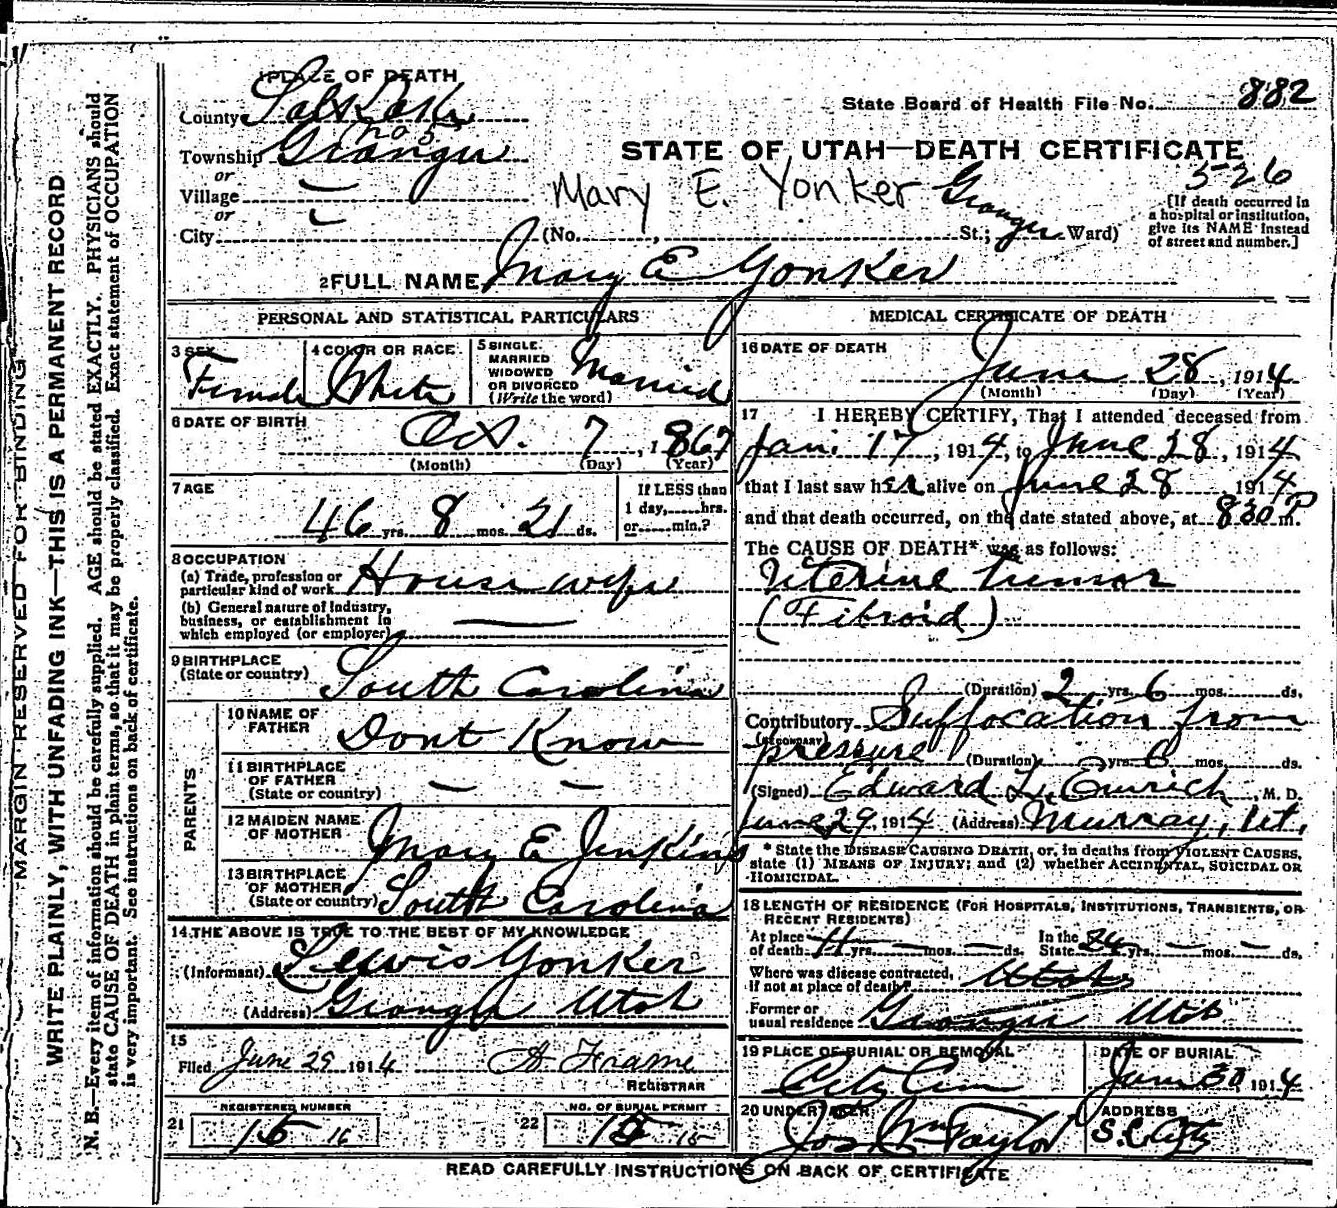 MARGIN RESERVED FOR BINDING
WRITE PLAINLY, WITH UNFADING INK—THIS IS A PERMANENT RECORD
N. B.—Every item of information should be carefully supplied. AGE should be stated EXACTLY. PHYSICIANS should
state CAUSE OF DEATH in plain terms, so that it may be properly classified. Exact statement of OCCUPATION
is very important. See instructions on back of certificate.
1 PLACE OF DEATH
County Salt Lake
State Board of Health File No. 882
no 5
Township Granger
STATE OF UTAH—DEATH CERTIFICATE
526
or
Village —
or
Mary E. Yonker Granger
[If death occurred in
a hospital or institution,
give its NAME instead
of street and number.]
City (No. , St.; Ward)
2 FULL NAME Mary E Yonker
PERSONAL AND STATISTICAL PARTICULARS
3 SEX
Female
4 COLOR OR RACE
White
5 SINGLE.
MARRIED
WIDOWED
OR DIVORCED
(Write the word)
Married
6 DATE OF BIRTH
Oct. 7, 1867
(Month) (Day) (Year)
7 AGE
46 yrs. 8 mos. 21 ds.
If LESS than
1 day, hrs.
or min.?
8 OCCUPATION
(a) Trade, profession or
particular kind of work House wife
(b) General nature of industry,
business, or establishment in
which employed (or employer) —
9 BIRTHPLACE
(State or country) South Carolina
PARENTS
10 NAME OF
FATHER Dont Know
11 BIRTHPLACE
OF FATHER
(State or country) — —
12 MAIDEN NAME
OF MOTHER Mary E Jenkins
13 BIRTHPLACE
OF MOTHER
(State or country) South Carolina
14 THE ABOVE IS TRUE TO THE BEST OF MY KNOWLEDGE
(Informant) Lewis Yonker
(Address) Granger Utah
15
Filed June 29 1914 A Frame
REGISTRAR
REGISTERED NUMBER
21 15 16
NO. OF BURIAL PERMIT
22 15 15
MEDICAL CERTIFICATE OF DEATH
16 DATE OF DEATH
June 28, 1914
(Month) (Day) (Year)
17 I HEREBY CERTIFY, That I attended deceased from
Jan. 17, 1914, to June 28, 1914
that I last saw her alive on June 28 1914
and that death occurred, on the date stated above, at 830 P m.
The CAUSE OF DEATH* was as follows:
Uterine tumor
(Fibroid)
(Duration) 2 yrs. 6 mos. ds.
Contributory Suffocation from
(SECONDARY)
pressure (Duration) yrs. 6 mos. ds.
(Signed) Edward L. Emrich, M. D.
June 29, 1914 (Address) Murray, Ut.
* State the DISEASE CAUSING DEATH, or, in deaths from VIOLENT CAUSES,
state (1) MEANS OF INJURY; and (2) whether ACCIDENTAL, SUICIDAL OR
HOMICIDAL.
18 LENGTH OF RESIDENCE (FOR HOSPITALS, INSTITUTIONS, TRANSIENTS, OR
RECENT RESIDENTS)
At place
of death 11 yrs. — mos. — ds.
In the
State 24 yrs. — mos. — ds.
Where was disease contracted,
if not at place of death? Utah
Former or
usual residence Granger Utah
19 PLACE OF BURIAL OR REMOVAL
City Cem
DATE OF BURIAL
June 30 1914
20 UNDERTAKER
Jos Wm Taylor
ADDRESS
S. L. City
READ CAREFULLY INSTRUCTIONS ON BACK OF CERTIFICATE